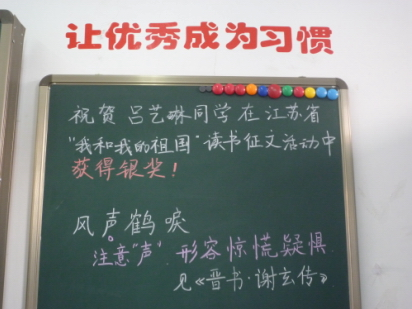 让优秀成为习惯
祝贺吕艺琳同学在江苏省
"我和我的祖国"读书征文活动中
获得银奖!
风声鹤唳
注意"声" 形容惊慌疑惧
见《晋书·谢玄传》